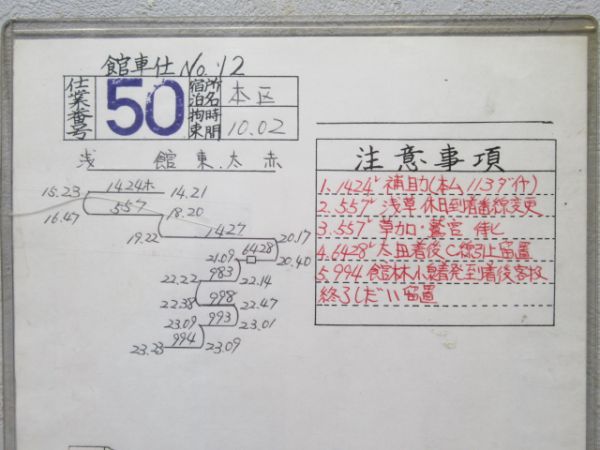 館車仕 No.12
仕業番号 50 宿泊所名 本区
拘束時間 10.02
浅 館 東 太 赤
15.23 1424ホ 14.21
16.47 557 18.20
19.22 1427 20.17
21.09 6428 20.40
22.22 983 22.14
22.38 998 22.47
23.09 993 23.01
23.23 994 23.09
注意事項
1.1424レ 補助(本ム 113ダイヤ)
2.557レ 浅草 休日到着番線変更
3.557レ 草加・鷲宮 待ヒ
4.6428レ 太田着後C線引上留置
5.994 館林小泉発到着後客扱
終了しだい留置